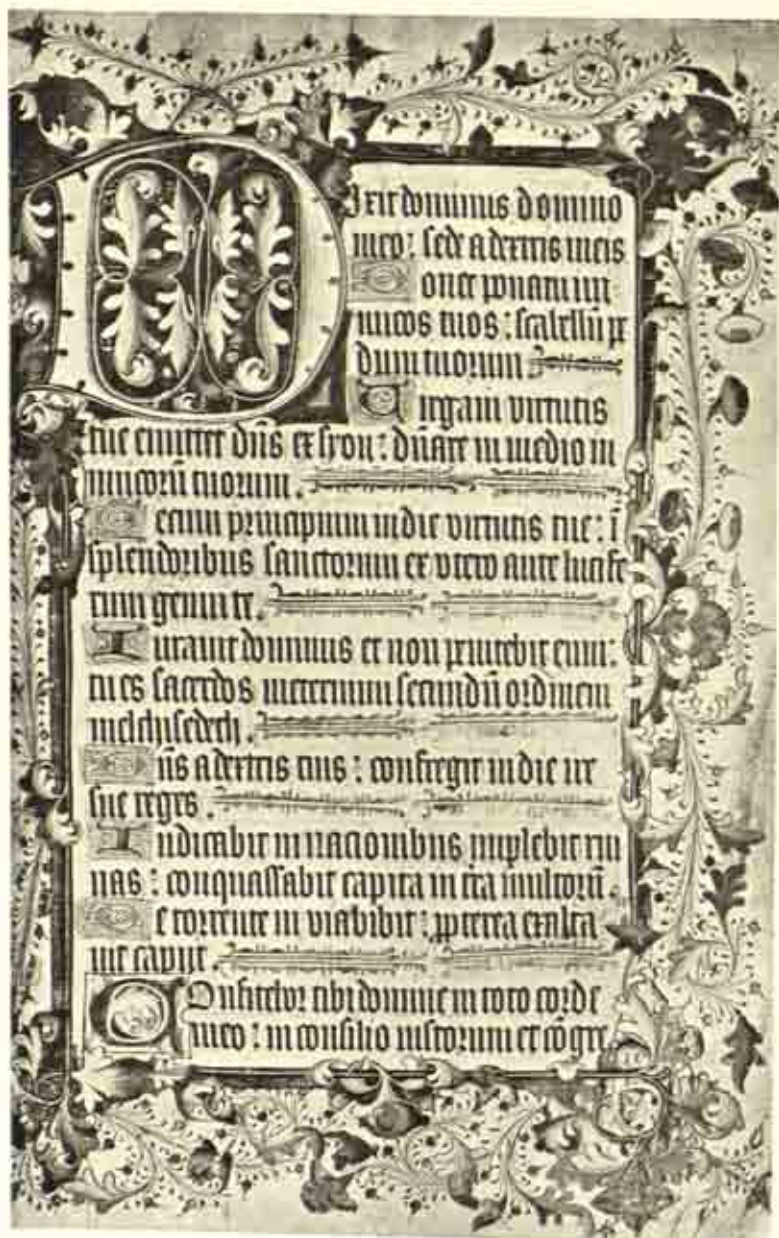 Dixit dominus domino
meo: sede a dextris meis
Donec ponam ini
micos tuos: scabellū pe
dum tuorum
Virgam virtutis
tue emittet dn̄s ex syon: dn̄are in medio ini
micorū tuorum.
Tecum principium in die virtutis tue: ī
splendoribus sanctorum ex vtero ante lucife
rum genui te.
Iurauit dominus et non penitebit eum:
tu es sacerdos ineternum secundū ordinem
melchisedech.
Dn̄s a dextris tuis: confregit in die ire
sue reges.
Iudicabit in nacionibus implebit rui
nas: conquassabit capita in t̄ra multorū.
De torrente in via bibit: ꝓpterea exalta
uit caput.
Confitebor tibi domine in toto corde
meo: in consilio iustorum et cōgre